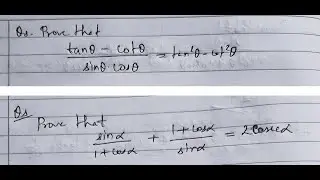 Qs. Prove that
tanθ - cotθ / sinθ·cosθ = tan²θ - cot²θ
Qs
Prove that
sinα / 1+cosα + 1+cosα / sinα = 2cosecα